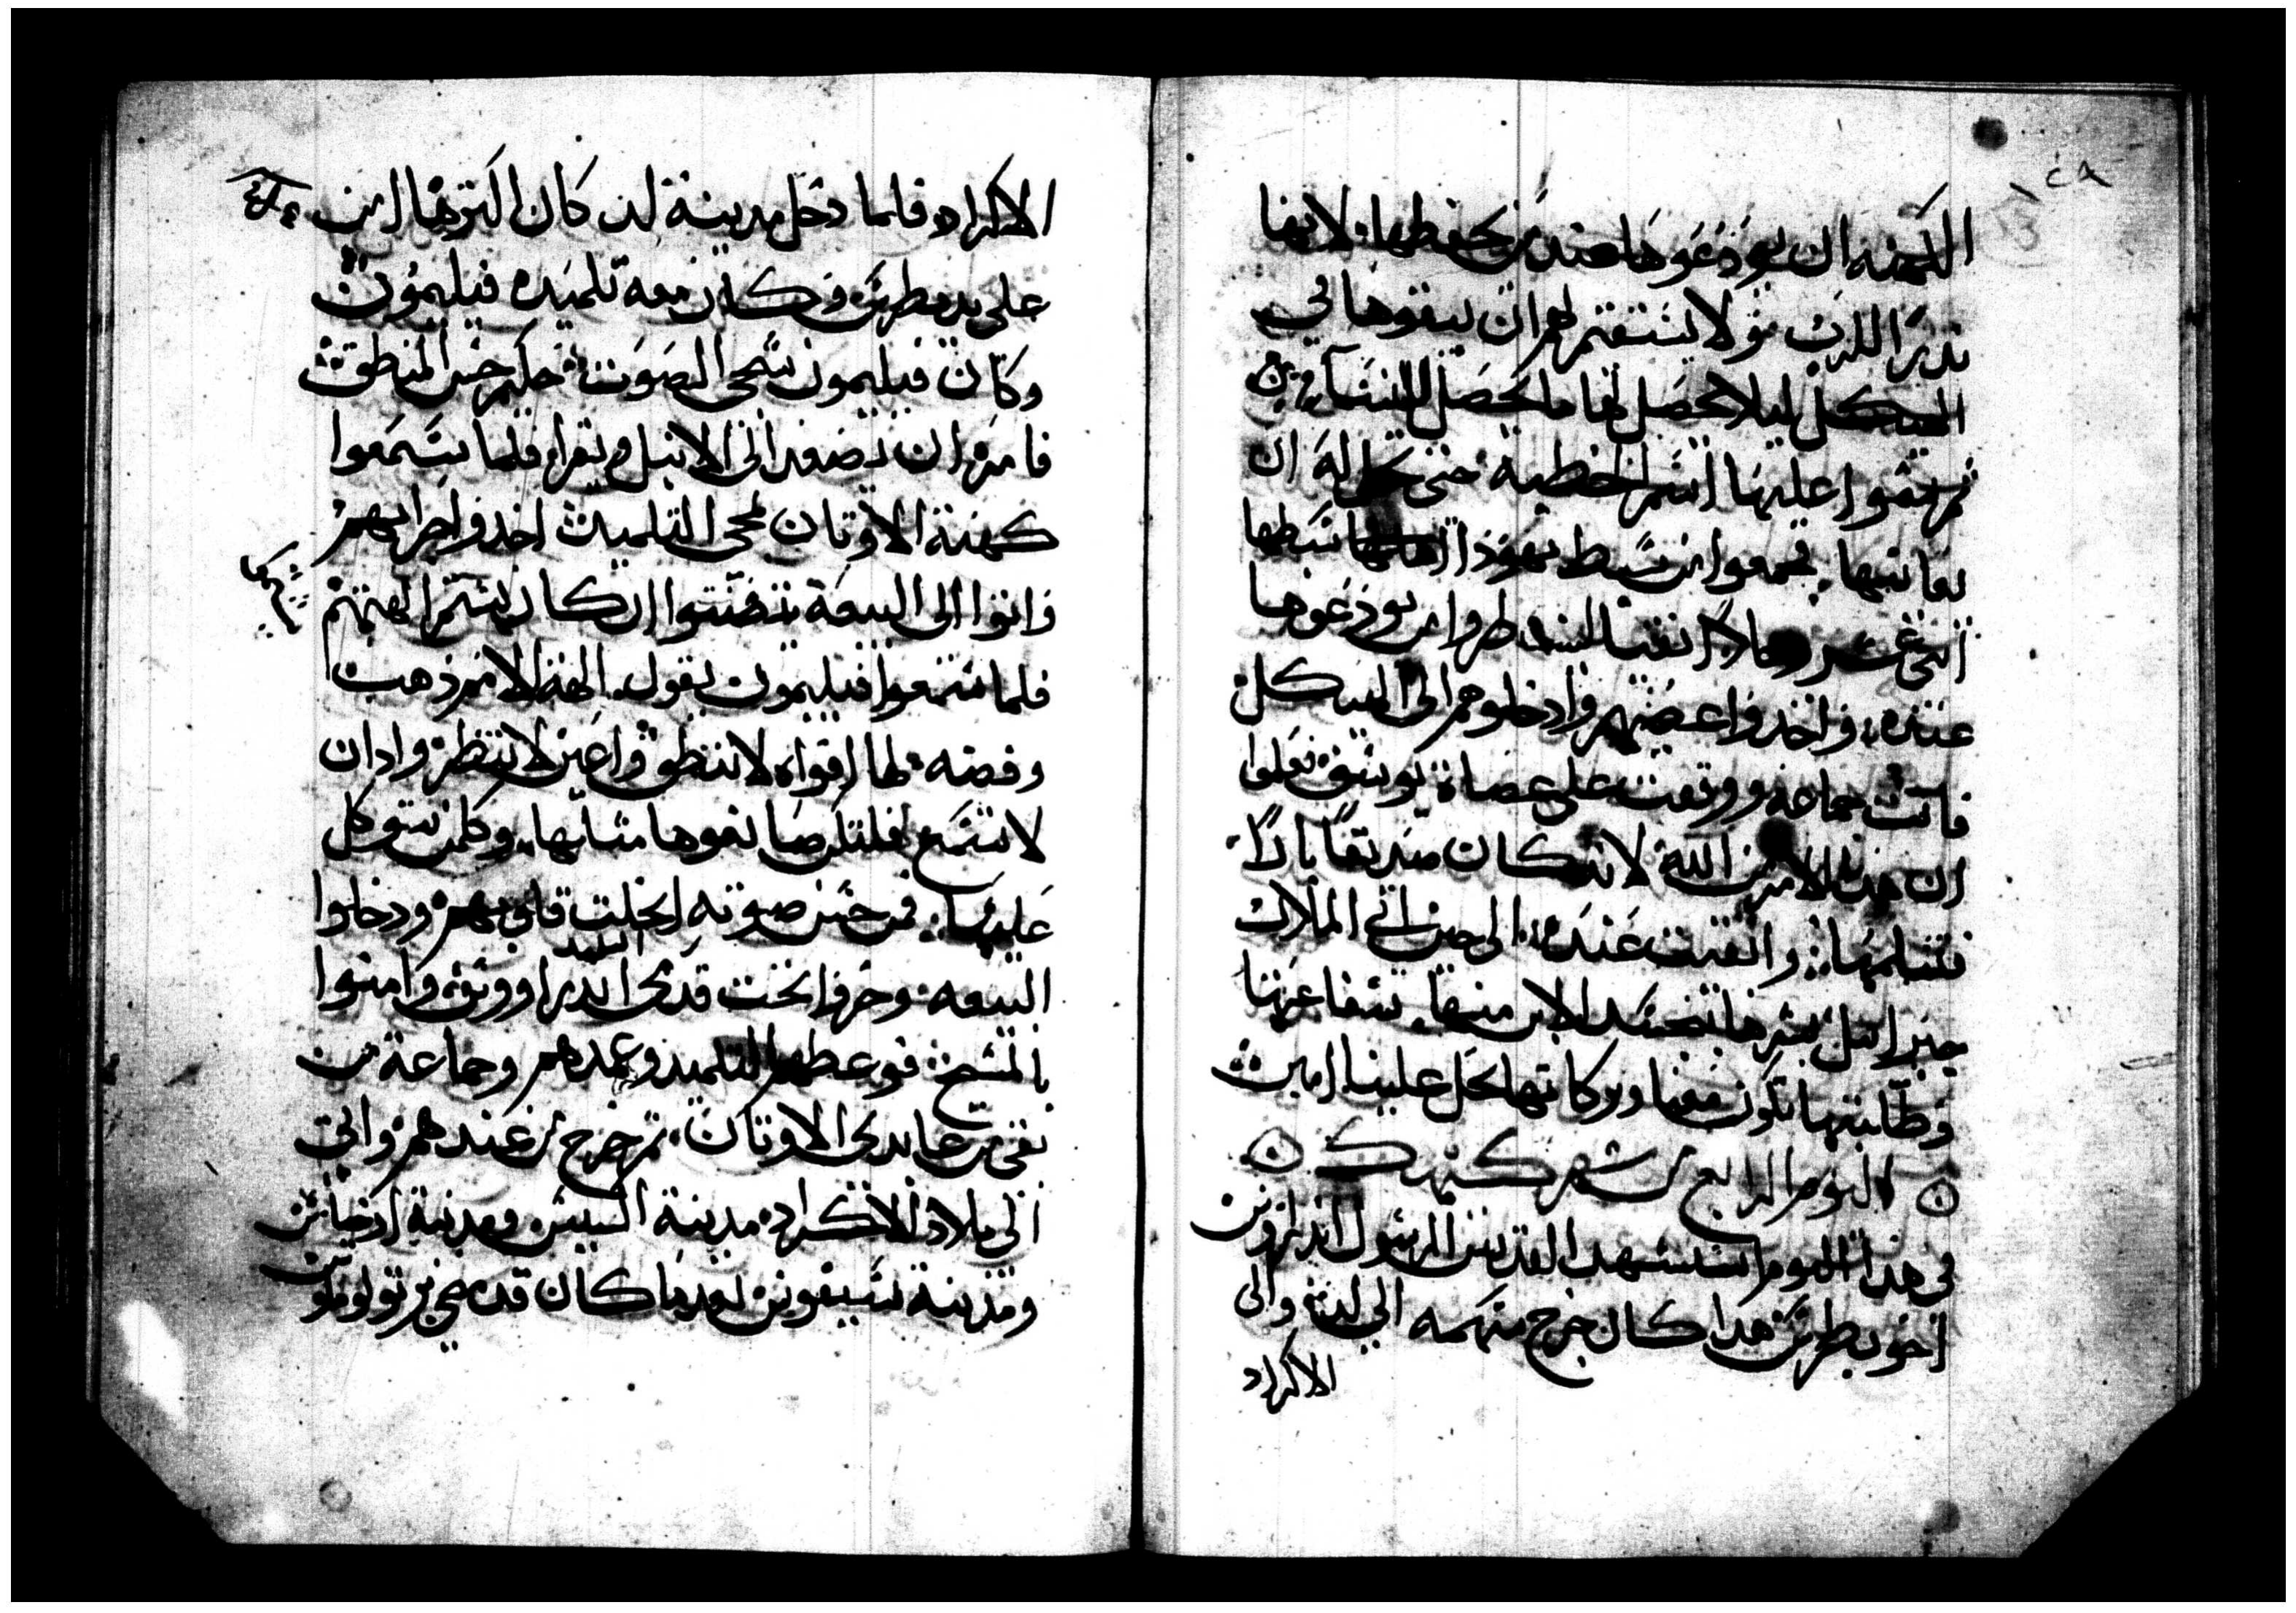 الكهنه ان يودعوها عند من يحفظها، لانها
نذر للرب ولا يستقم لهم ان يبقوها في
الهيكل ليلا يحصل لها ما يحصل للنسا من
ثم يتموا عليها اسم الخطية حتى تحل له ان
يعاتبها. فجمعوا من سبط يهوذا
اتنى عشر رجلا اتقيا لينظروا من يودعوها
عنده، واخذوا عصيهم وادخلوهم الى الهيكل
فاتت حمامة ووقعت على عصاة يوسف فعلموا
ان هذا الامر من الله لانه كان صديقا بارا
فتسلمها: واقفيت عنده، الى حين اتى الملاك
جبرايل بشرها بتجسد الابن منها. شفاعتها
وطلبتها تكون معنا وبركاتها تحل علينا امين
اليوم الرابع من شهر كيهك
في هذا اليوم استشهد القديس الرسول اندراوس
اخو بطرس هدا كان خرج سهمه الي لد والى
الاكراد
الاكراد فلما دخل مدينة لد كان اكترها امن
على يد بطرس وكان معه تلميده فيليمون
وكان فيليمون شجى الصوت حكم حسن المنطق
فامره ان يصعد الى الانبل ويقرا، فلما سمعوا
كهنة الاوتان بمجى التلميد اخدوا حرابهم
واتوا الى البيعة يتصنتوا ان كان يشتم الهتهم
فلما سمعوا فيليمون يقول. الهة الامم ذهب
وفضه لها افواه لا تنطق واعين لا تنظر وادان
لا تسمع فلتكن صانعوها مثلها. وكل من يتوكل
عليها: فمن حسن صوته انحلت قلوبهم ودخلوا
التلميد
البيعه وخروا تحت قدمى اندراووس وامنوا
بالمسيح فوعظهم التلميد وعمدهم وجماعة من
بقى من عابدى الاوتان. ثم خرج من عندهم واتى
الى بلاد الاكراد مدينة السيس ومدينة
ومدينة بعد ما كان قد مضى برتولوماوس